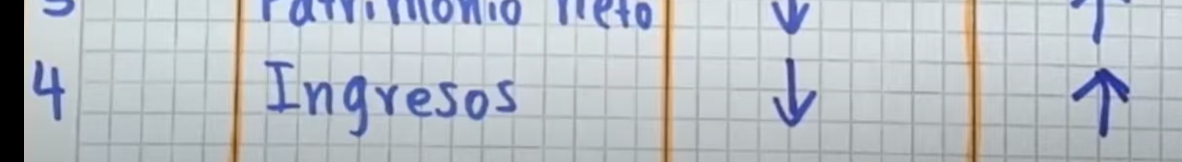 3 Patrimonio neto ↓ ↑
4 Ingresos ↓ ↑